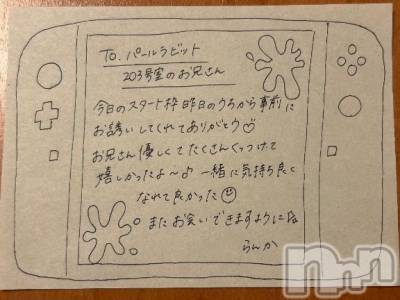 To. パールラビット
203号室のお兄さん
今日のスタート枠昨日のうちから事前に
お誘いしてくれてありがとウ♡
お兄さん優しくてたくさんくっつけて
嬉しかったよ〜♪ 一緒に気持ち良く
なれて良かった☺
またお会いできますように
らんか